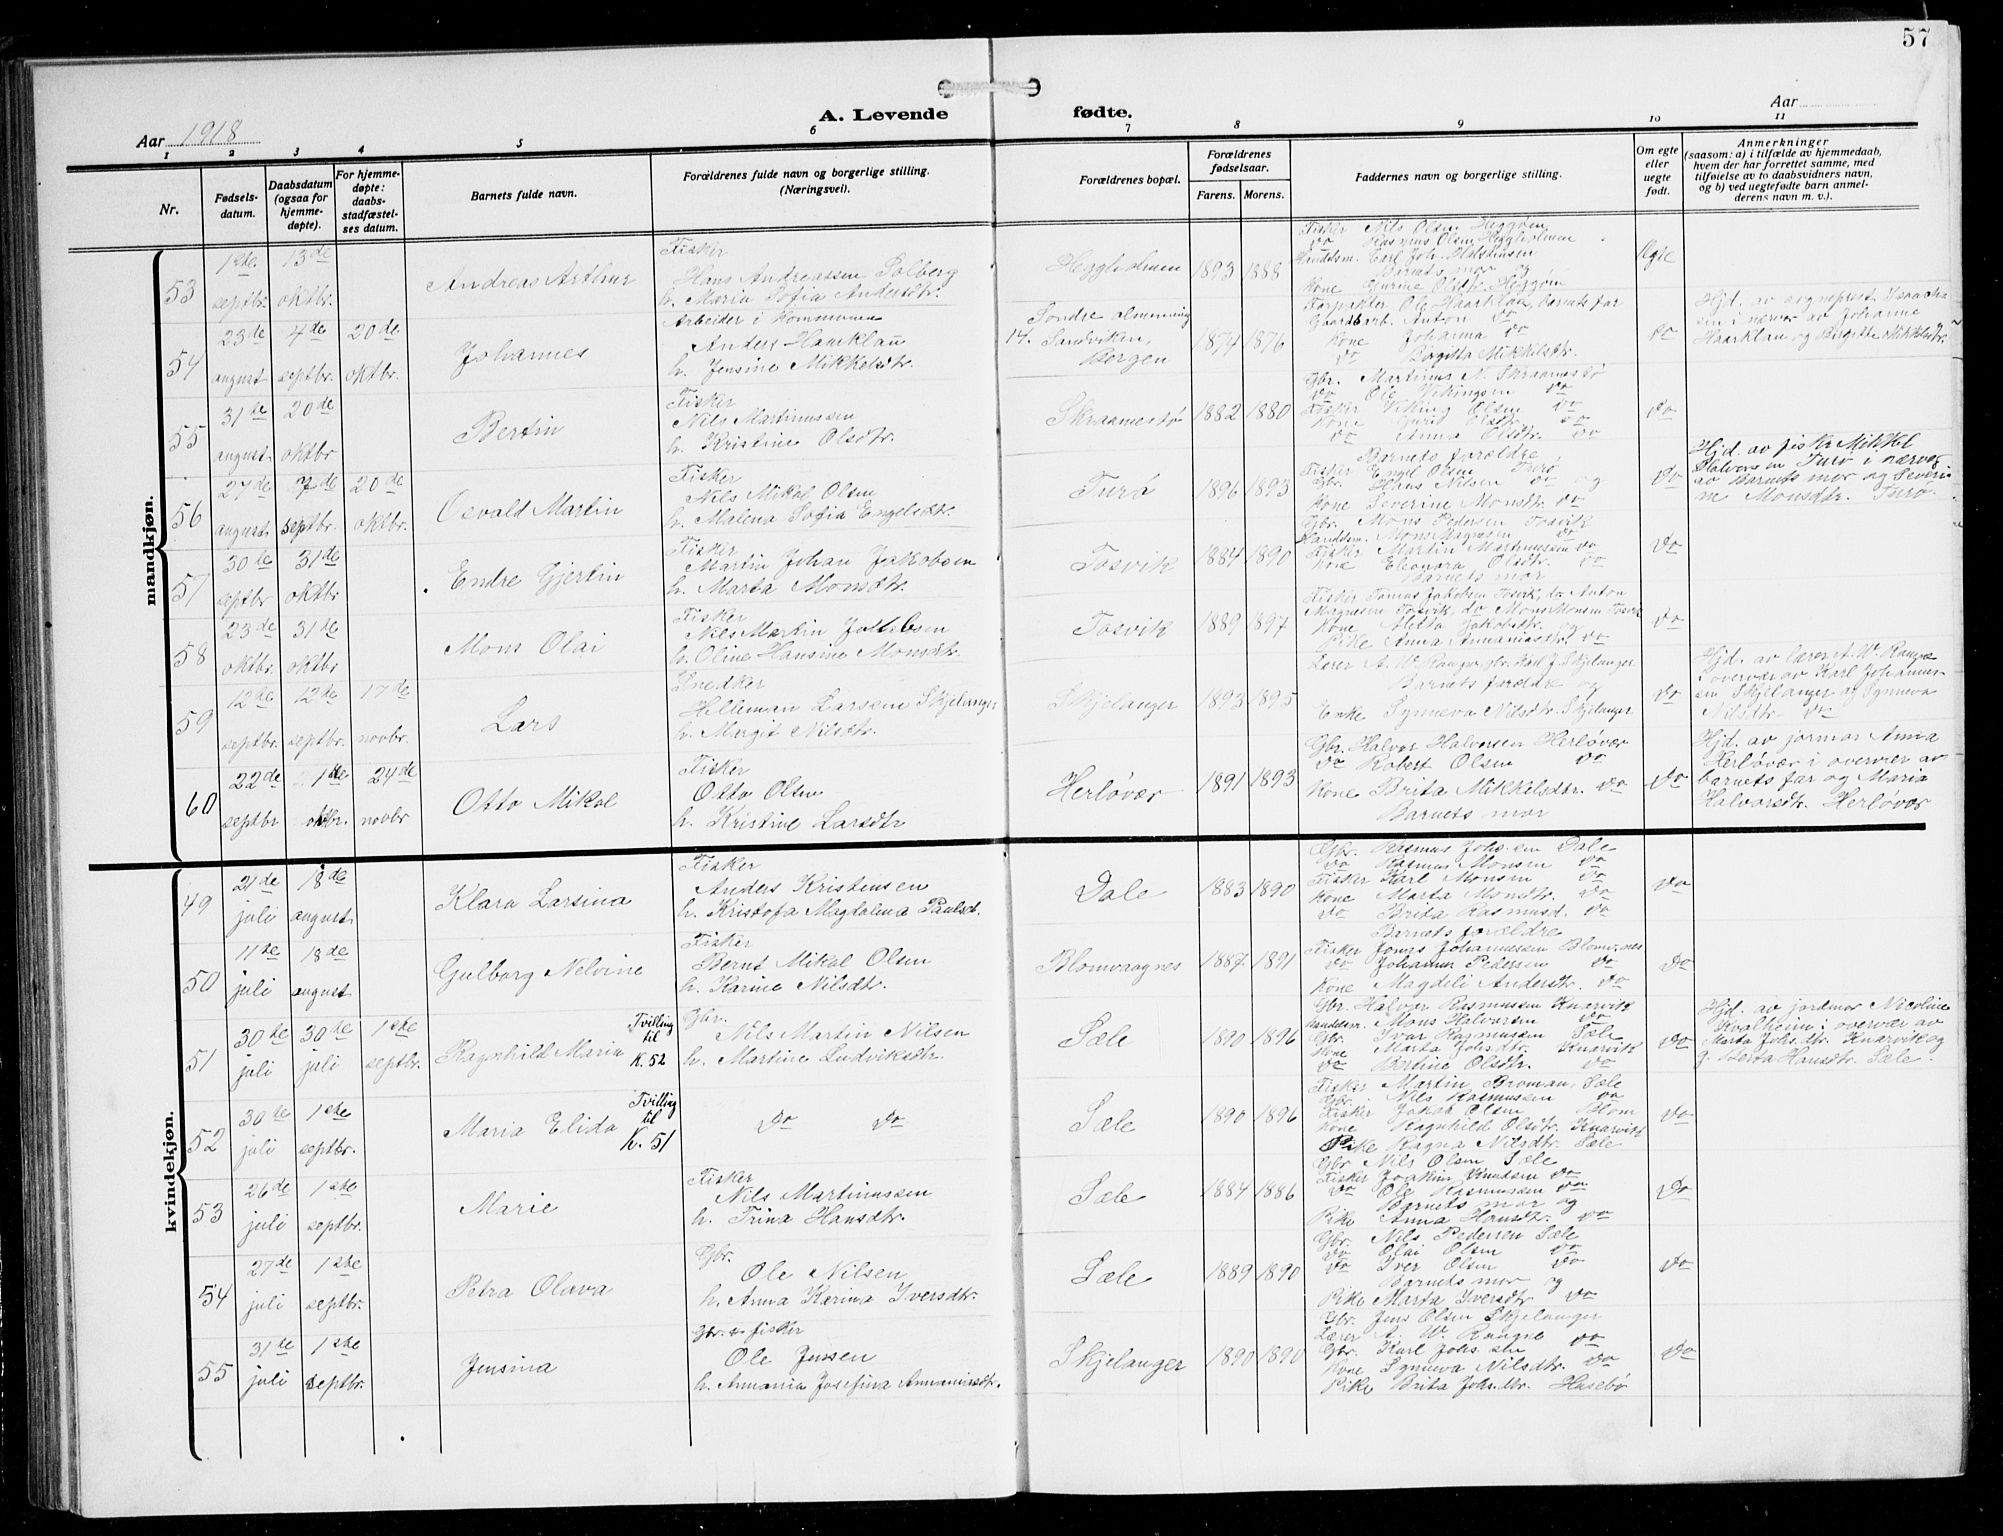 57
A. Levende fødte.
Aar 1918
Aar
1 2 3 4 5 6 7 8 9 10 11
Nr.
Fødsels-
datum.
Daabsdatum
(ogsaa for
hjemme-
døpte).
For hjemme-
døpte:
daabs-
stadfæstel-
ses datum.
Barnets fulde navn.
Forældrenes fulde navn og borgerlige stilling.
(Næringsvei).
Forældrenes bopæl.
Forældrenes
fødselsaar.
Farens. Morens.
Faddernes navn og borgerlige stilling.
Om egte
eller
uegte
født.
Anmerkninger
(saasom: a) i tilfælde av hjemmedaab,
hvem der har forrettet samme, med
tilføielse av to daabsvidners navn,
og b) ved uegtefødte barn anmel-
derens navn m. v.).
mandkjøn.
53
1ste septbr.
13de oktbr.
Andreas Arthur
Fisker
Hans Andreassen Solberg
h. Maria Sofia Andersdtr.
Heggholmen
1893 1888
Fisker Nils Olsen Heggøen
do Rasmus Olsen Heggholmen
Handelsm. Carl Joh. Halstensen
Barnets mor og
Kone Gurine Olsdtr. Heggøen
54
23de august
4de septbr.
20de oktbr.
Johannes
Arbeider i kommunen
Anders Haarklau
h. Jensine Mikkelsdtr.
Søndre almenning
14. Sandviken,
Bergen
1874 1876
Forpakter Ole Haarklau, barnets far
Gaardbarb. Anton do
Kone Johanna do
do Birgitta Mikkelsdtr.
do
Hjd. av sogneprest Isaach-
sen i nærvær av Johanne
Haarklau og Birgitte Mikkelsdtr.
55
31te august
20de oktbr
Bertin
Fisker
Nils Martinussen
h. Kristine Olsdtr.
Skraamestø
1882 1880
Gbr. Martinus N. Skraamestø
do Ole Vikingsen do
Fisker Viking Olsen do
Kone Guri Olsdtr. do
do Anna Olsdtr. do
do
56
27de august
7de septbr.
20de oktbr.
Osvald Martin
Fisker
Nils Mikal Olsen
h. Malena Sofia Engelsdtr.
Turø
1896 1893
Barnets forældre
Fisker Engel Olsen Turø
Gbr. Hans Nilsen do og
Kone Severine Monsdtr. do
do
Hjd. av fisker Mikkel
Halvorsen Turø i nærvær
av barnets mor og Severi-
ne Monsdtr. Turø
57
30te septbr
31te oktbr
Endre Gjertin
Fisker
Martin Johan Jakobsen
h. Marta Monsdtr.
Tosvik
1884 1890
Gbr. Mons Pedersen Tosvik
Handelsm. Mons Magnesen do
Fisker Martin Martinussen do
Kone Eleonora Olsdtr. do
Barnets mor
do
58
23de oktbr
31te oktbr
Mons Olai
Fisker
Nils Martin Jakobsen
h. Oline Hansine Monsdtr.
Tosvik
1889 1897
Fisker Tomas Jakobsen Tosvik, do Anton
Magnesen Tosvik, do Mons Monsen Tosvik
Kone Aletta Jakobsdtr. og
Pike Anna Annaniasdtr. do
do
59
12te septbr
12te septbr.
17de novbr.
Lars
Snedker
Hilleman Larsen Skjelanger
h. Margit Nilsdtr.
Skjelanger
1893 1895
Lærer A. W. Rangø, gbr. Karl J. Skjelanger
Barnets forældre og
Enke Synneva Nilsdtr. Skjelanger
do
Hjd. av lærer A. W. Rangø
i overvær av Karl Johannes-
sen Skjelanger og Synneva
Nilsdtr. do
60
22de septbr
1ste oktbr.
24de novbr
Otto Mikal
Fisker
Otto Olsen
h. Kristine Larsdtr
Herløvær
1891 1893
Gbr. Halvor Halvorsen Herløvær
do Robert Olsen do
Kone Brita Mikkelsdtr. do
Barnets mor
do
Hjd. av jormor Anna
Herløvær i overvær av
barnets far og Maria
Halvorsdtr. Herløvær
kvindekjøn.
49
21de juli
18de august
Klara Larsina
Fisker
Anders Kristensen
h. Kristofa Magdalena Paulsd.
Dale
1883 1890
Gbr. Rasmus Johs.sen Dale
do Rasmus Monsen do
Fisker Karl Monsen do
Kone Marta Monsdtr. do
do Brita Rasmusd. do
do
50
11te juli
18de august
Gulborg Nelvine
Fisker
Bernt Mikal Olsen
h. Karine Nilsdtr.
Blomvaagnes
1887 1891
Barnets forældre
Fisker Jonas Johannessen Blomv.nes
do Johannes Pedersen do
Kone Magdeli Anderstr. do
do
51
30te juli
30te juli
1ste septbr.
Ragnhild Maria
Tvilling
til
K. 52
Gbr.
Nils Martin Nilsen
h. Martine Ludviksdtr.
Sæle
1890 1896
Gbr. Halvor Rasmussen Knarvik
Handelsm. Mons Halvorsen do
Gbr. Ivar Rasmussen Sæle
Kone Marta Johs.dtr. Knarvik
do Bertine Olsdtr. do
do
Hjd. av jordmor Nicoline
Kvalheim i overvær av
Marta Johs.dtr. Knarvik og
g. Berta Hansdtr. Sæle.
52
30te juli
1ste septbr.
Maria Elida
Tvilling
til
K. 51
do do
Sæle
1890 1896
Fisker Martin Broman, Sæle
Gbr. Nils Rasmussen do
Fisker Jakob Olsen Blom
Kone Ragnhild Olsdtr. Knarvik
Pike Ragna Nilsdtr. Sæle
do
53
26de juli
1ste septbr.
Marie
Fisker
Nils Martinussen
h. Trina Hansdtr.
Sæle
1884 1886
Gbr Nils Olsen Sæle
Fisker Joakim Knudsen do
do Ole Rasmussen do
Barnets mor og
Pike Anna Hansdtr. do
do
54
27de juli
1ste septbr.
Petra Olava
Gbr.
Ole Nilsen
h. Anna Karina Iversdtr.
Sæle
1889 1890
Gbr. Nils Pedersen Sæle
do Olai Olsen do
do Iver Olsen do
Barnets mor og
Pike Marta Iversdtr do
do
55
31te juli
1ste septbr.
Jensina
Gbr. & fisker
Ole Jensen
h. Annania Josefina Annaniasdtr.
Skjelanger
1890 1890
Gbr. Jens Olsen Skjelanger
Lærer A. W. Rangnø do
Gbr. Karl Johs.sen do
Kone Synneva Nilsdtr. do
Pike Brita Johs.dtr. Husebø
do